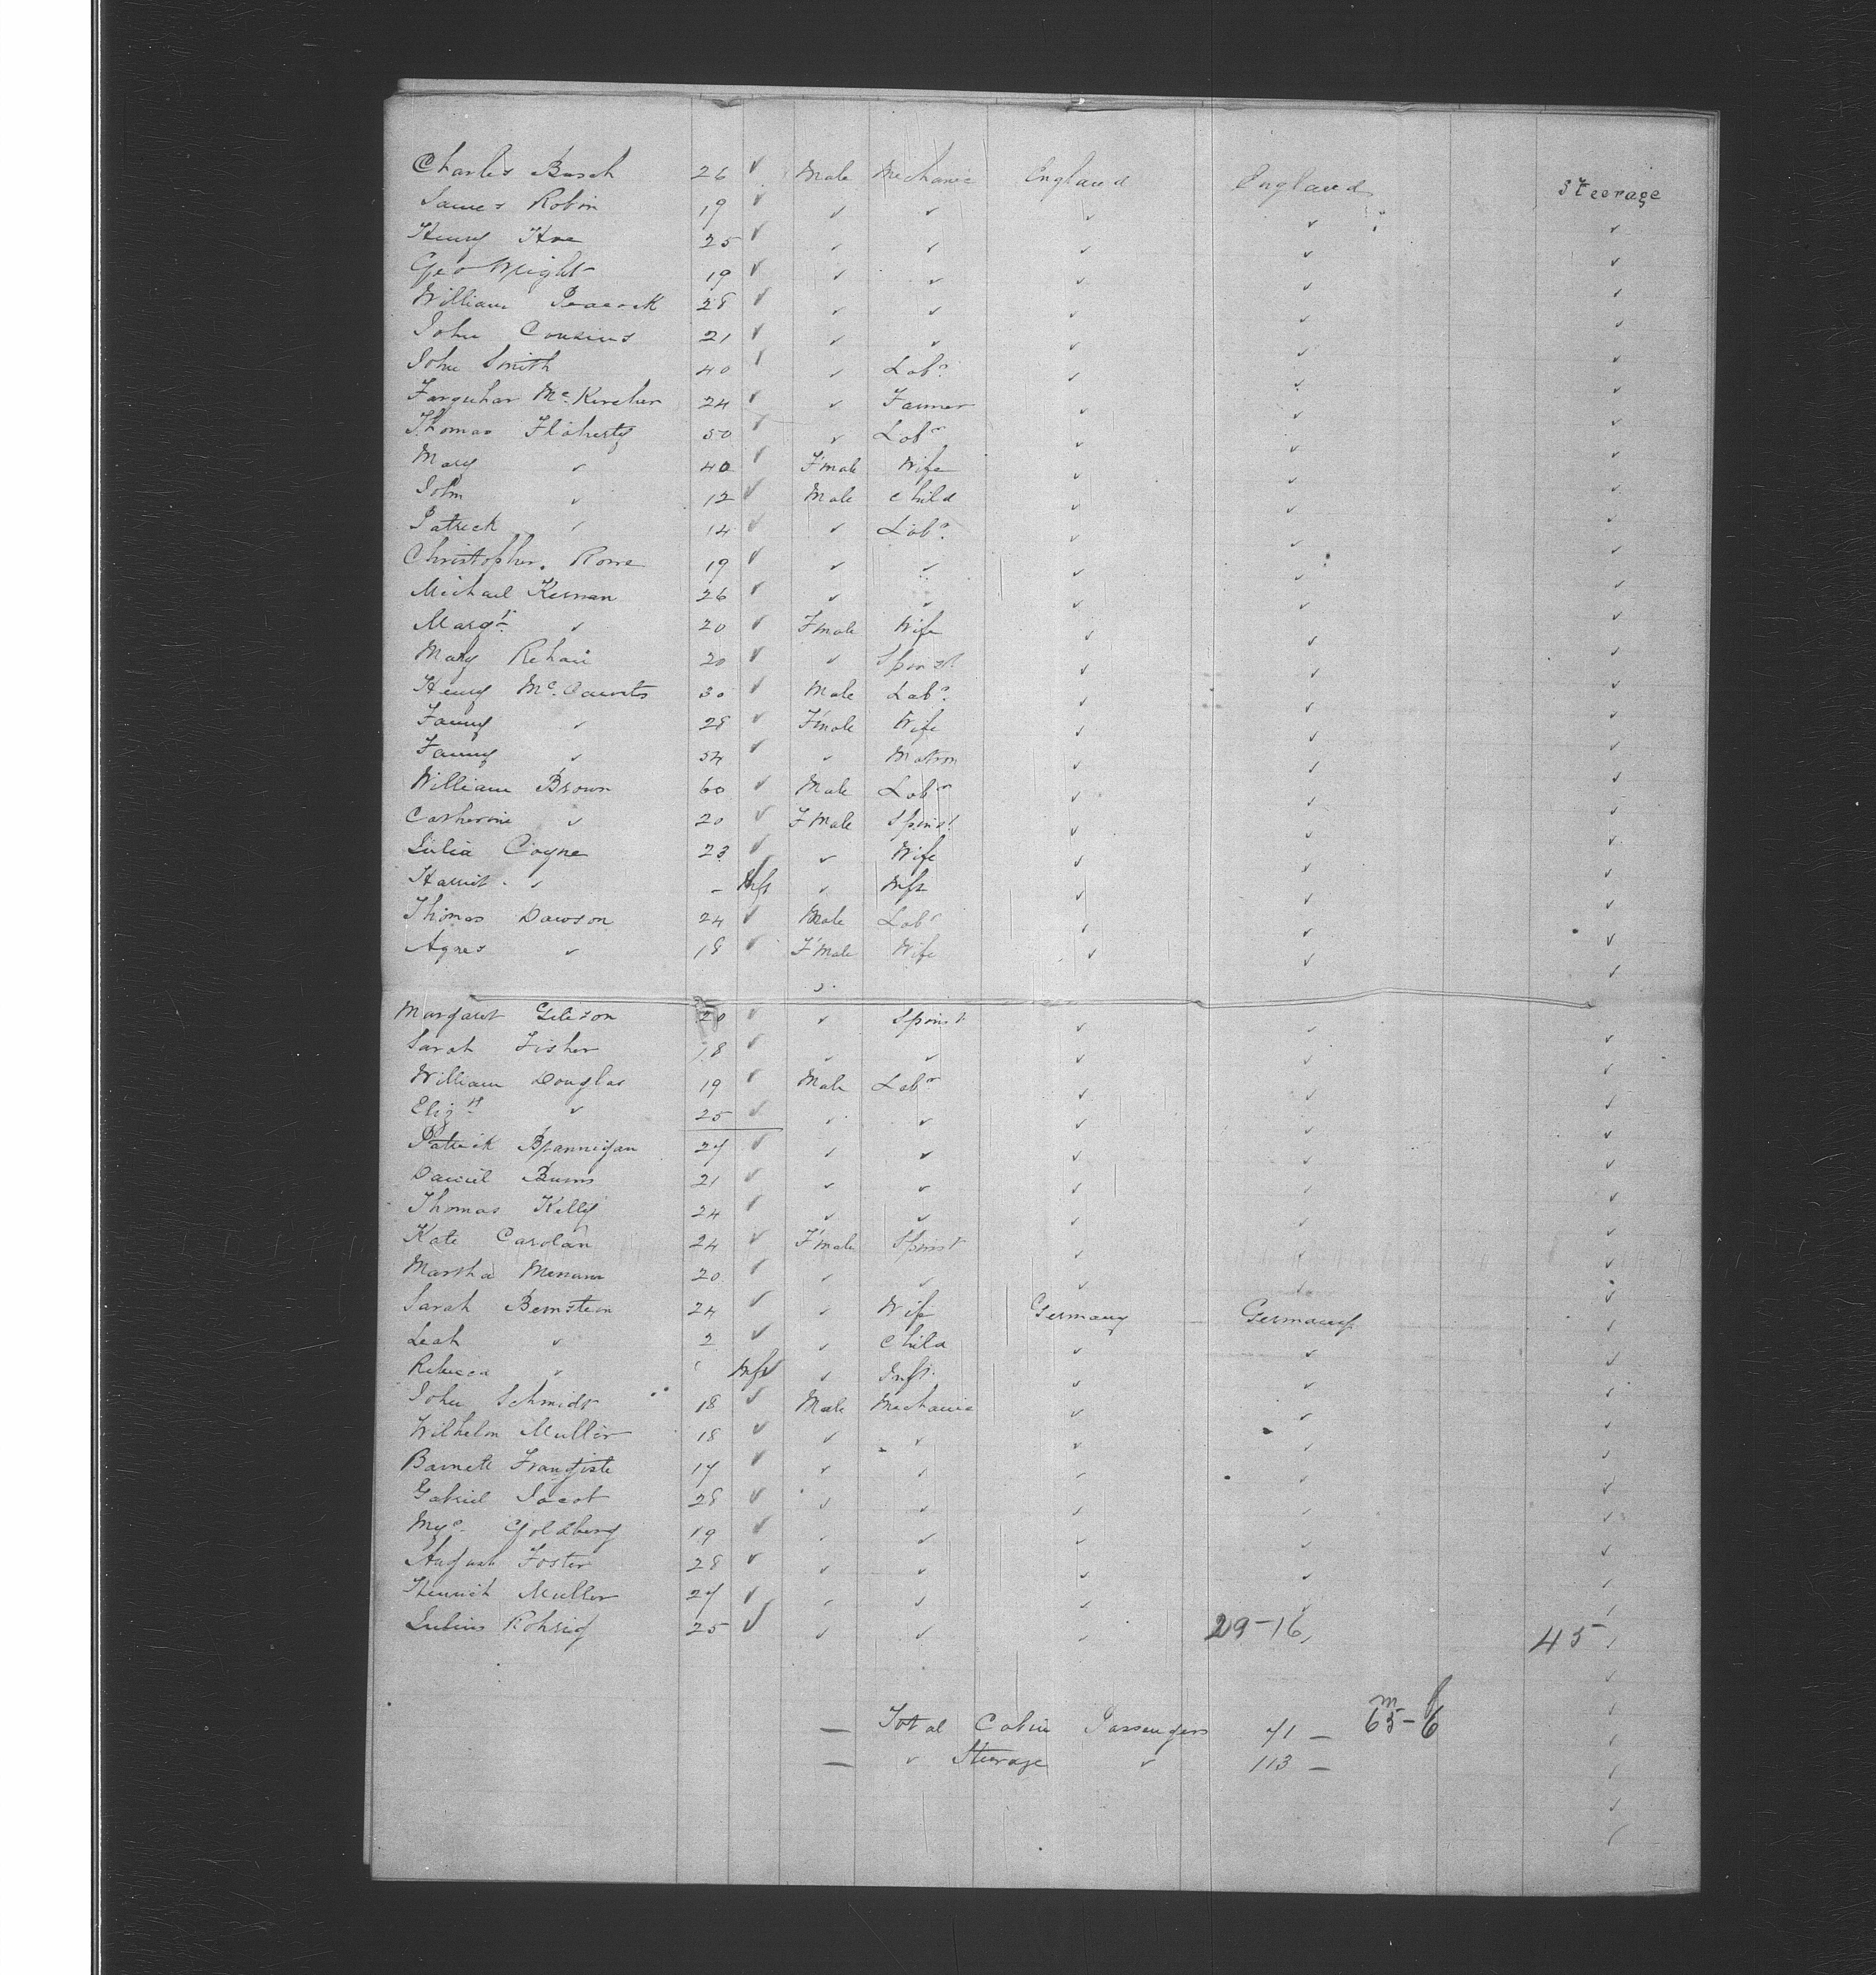 Charles Busch 26 ✓ Male Mechanic England England Steerage
James Robin 19 ✓ ✓ ✓ ✓ ✓ ✓
Henry 25 ✓ ✓ ✓ ✓ ✓ ✓
Geo Wright 19 ✓ ✓ ✓ ✓ ✓ ✓
William Peacock 28 ✓ ✓ ✓ ✓ ✓ ✓
John Cousins 21 ✓ ✓ ✓ ✓ ✓ ✓
John Smith 40 ✓ ✓ Labr ✓ ✓ ✓
Farquhar McKercher 24 ✓ ✓ Farmer ✓ ✓ ✓
Thomas Flaherty 50 ✓ ✓ Labr ✓ ✓ ✓
Mary ✓ 40 ✓ F'male Wife ✓ ✓ ✓
John ✓ 12 ✓ Male Child ✓ ✓ ✓
Patrick ✓ 14 ✓ ✓ Labr ✓ ✓ ✓
Christopher Rowe 19 ✓ ✓ ✓ ✓ ✓ ✓
Michael Kernan 26 ✓ ✓ ✓ ✓ ✓ ✓
Margt ✓ 20 ✓ F'male Wife ✓ ✓ ✓
Mary 20 ✓ ✓ Spinst ✓ ✓ ✓
Henry 30 ✓ Male Labr ✓ ✓ ✓
Fanny ✓ 28 ✓ F'male Wife ✓ ✓ ✓
Fanny ✓ 54 ✓ ✓ Matron ✓ ✓ ✓
William Brown 60 ✓ Male Labr ✓ ✓ ✓
Catherine ✓ 20 ✓ F'Male Spinst ✓ ✓ ✓
Julia Coyne 23 ✓ ✓ Wife ✓ ✓ ✓
Harriet ✓ - Inft ✓ Inft ✓ ✓ ✓
Thomas Dawson 24 ✓ Male Labr ✓ ✓ ✓
Agnes ✓ 18 ✓ F'Male Wife ✓ ✓ ✓
Margaret 20 ✓ ✓ Spinst ✓ ✓ ✓
Sarah Fisher 18 ✓ ✓ ✓ ✓ ✓ ✓
William Douglas 19 ✓ Male Labr ✓ ✓ ✓
Elizth ✓ 25 ✓ ✓ ✓ ✓ ✓ ✓
Patrick Brannigan 27 ✓ ✓ ✓ ✓ ✓ ✓
Daniel Burns 21 ✓ ✓ ✓ ✓ ✓ ✓
Thomas Kelly 24 ✓ ✓ ✓ ✓ ✓ ✓
Kate Carolan 24 ✓ F'male Spinst ✓ ✓ ✓
Martha 20 ✓ ✓ ✓ ✓ ✓ ✓
Sarah Bernstein 24 ✓ ✓ Wife Germany Germany ✓
Leah ✓ 2 ✓ ✓ Child ✓ ✓ ✓
Rebecca ✓ Inft ✓ Inft ✓ ✓ ✓
John Schmidt 18 ✓ Male Mechanic ✓ ✓ ✓
Wilhelm Muller 18 ✓ ✓ ✓ ✓ ✓ ✓
Barnett 17 ✓ ✓ ✓ ✓ ✓ ✓
Gabriel Jacob 28 ✓ ✓ ✓ ✓ ✓ ✓
Goldberg 19 ✓ ✓ ✓ ✓ ✓ ✓
August Foster 28 ✓ ✓ ✓ ✓ ✓ ✓
Heinrich Muller 27 ✓ ✓ ✓ ✓ ✓ ✓
Julius Rohrig 25 ✓ ✓ ✓ ✓ 29-16 45
m f
65-6
— Total Cabin Passengers 71 —
— ✓ Steerage ✓ 113 —